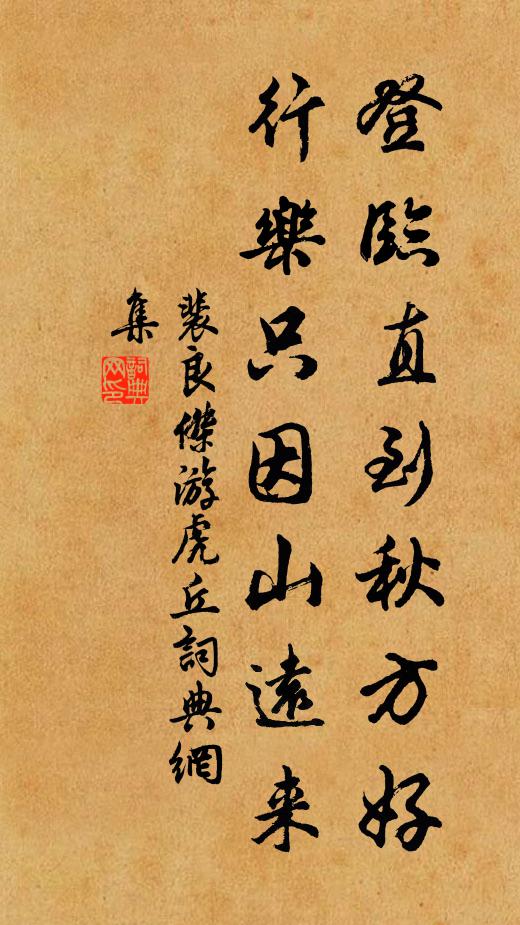 登臨直到秋方好
行樂只因山遠来
裴良傑游虎丘詞典網
集
詞典网印